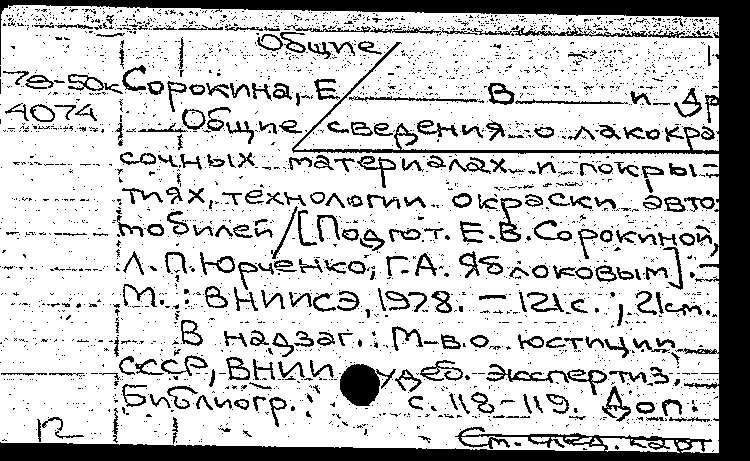 Общие
78-50к Сорокина, Е В и др
4074 Общие сведения о лакокра-
сочных материалах и покры-
тиях, технологии окраски авто-
мобилей / [Подгот. Е.В. Сорокиной,
Л.П. Юрченко, Г.А. Яблоковым]. –
М. : ВНИИСЭ, 1978. – 121 с. ; 21 см.
В надзаг.: М-во юстиции
СССР, ВНИИ судеб. экспертиз.
Библиогр.: с. 118-119. Доп.
См. след. карт